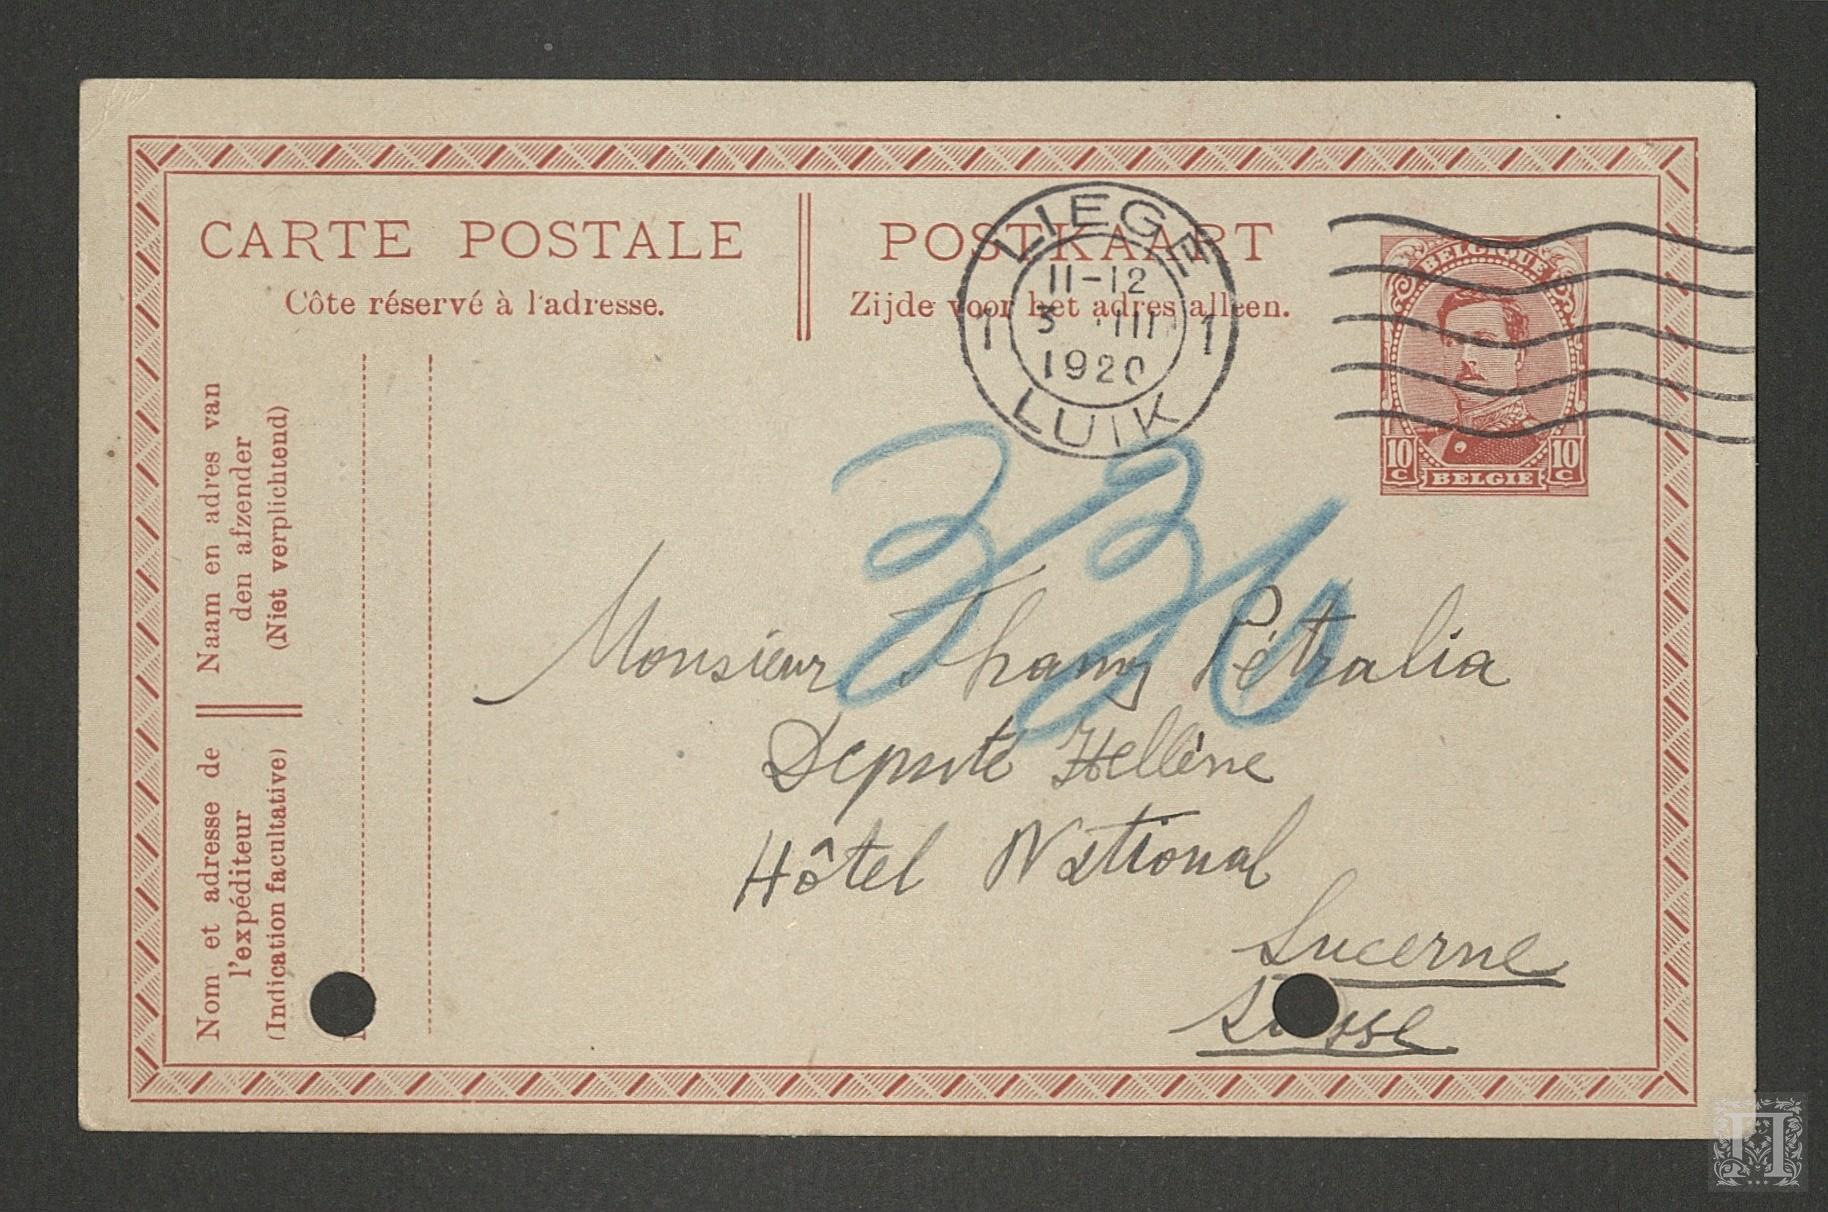 CARTE POSTALE
Côte réservé à l'adresse.
POSTKAART
Zijde voor het adres alleen.
LIEGE
11-12
1 3 III 1
1920
LUIK
BELGIQUE
10 C 10 C
BELGIE
Naam en adres van
den afzender
(Niet verplichtend)
Nom et adresse de
l'expéditeur
(Indication facultative)
330
Monsieur Thany Pétralia
Deputé Hellène
Hôtel National
Lucerne
Suisse